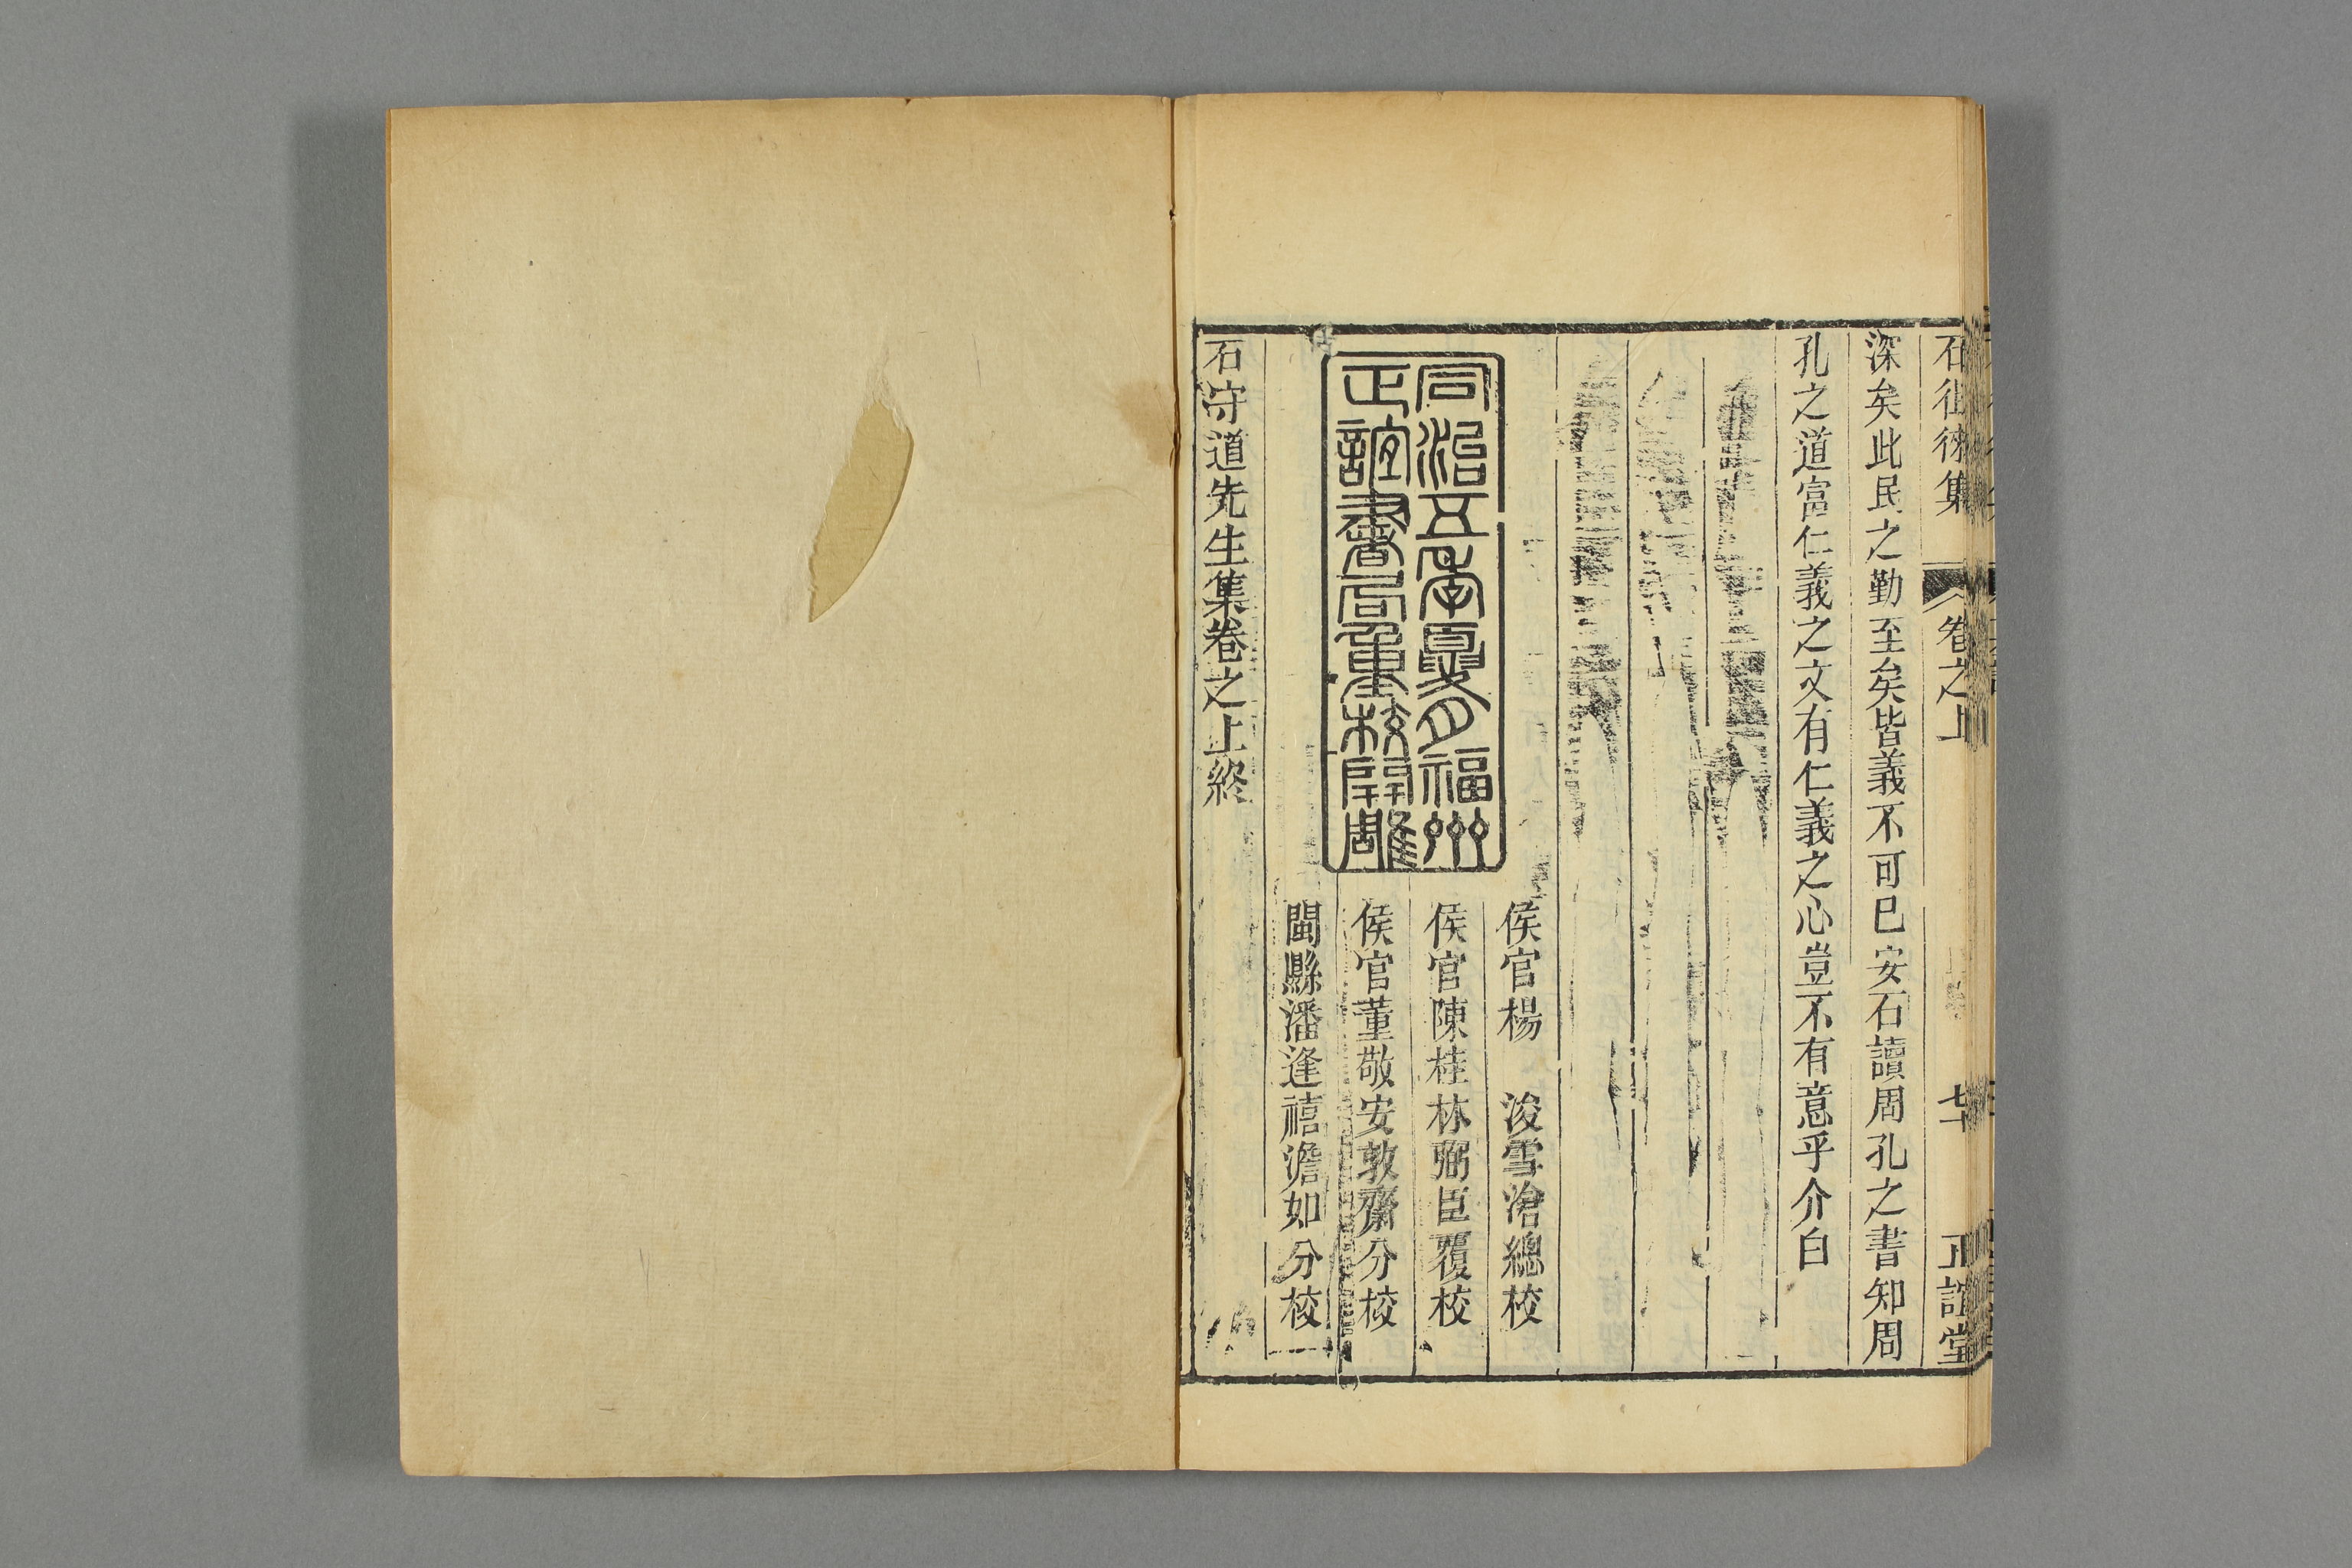 石徂徠集 卷之上 七十 正誼堂
深矣此民之勤至矣皆義不可巳安石讀周孔之書知周
孔之道富仁義之文有仁義之心豈不有意乎介白
同治五年夏月福州
正誼書局重校開雕
侯官楊 浚雪滄總校
侯官陳桂林弼臣覆校
侯官董敬安敦齋分校
閩縣潘逢禧澹如分校
石守道先生集卷之上終